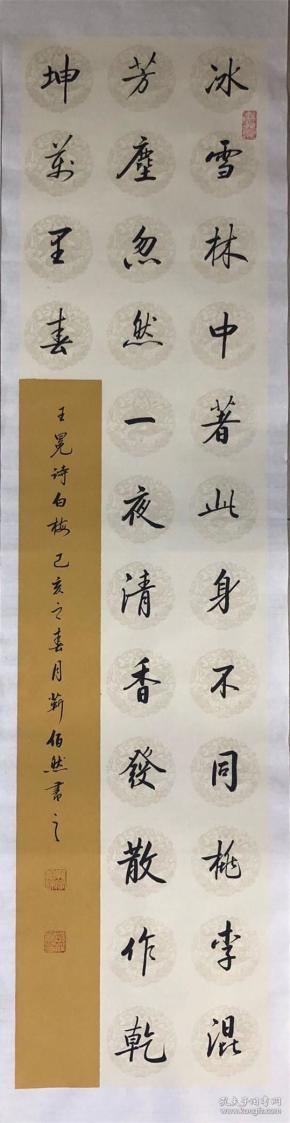 冰雪林中著此身不同桃李混
芳塵忽然一夜清香發散作乾
坤萬里春
王冕诗白梅己亥之春月靳佰然書之
孔夫子旧书网